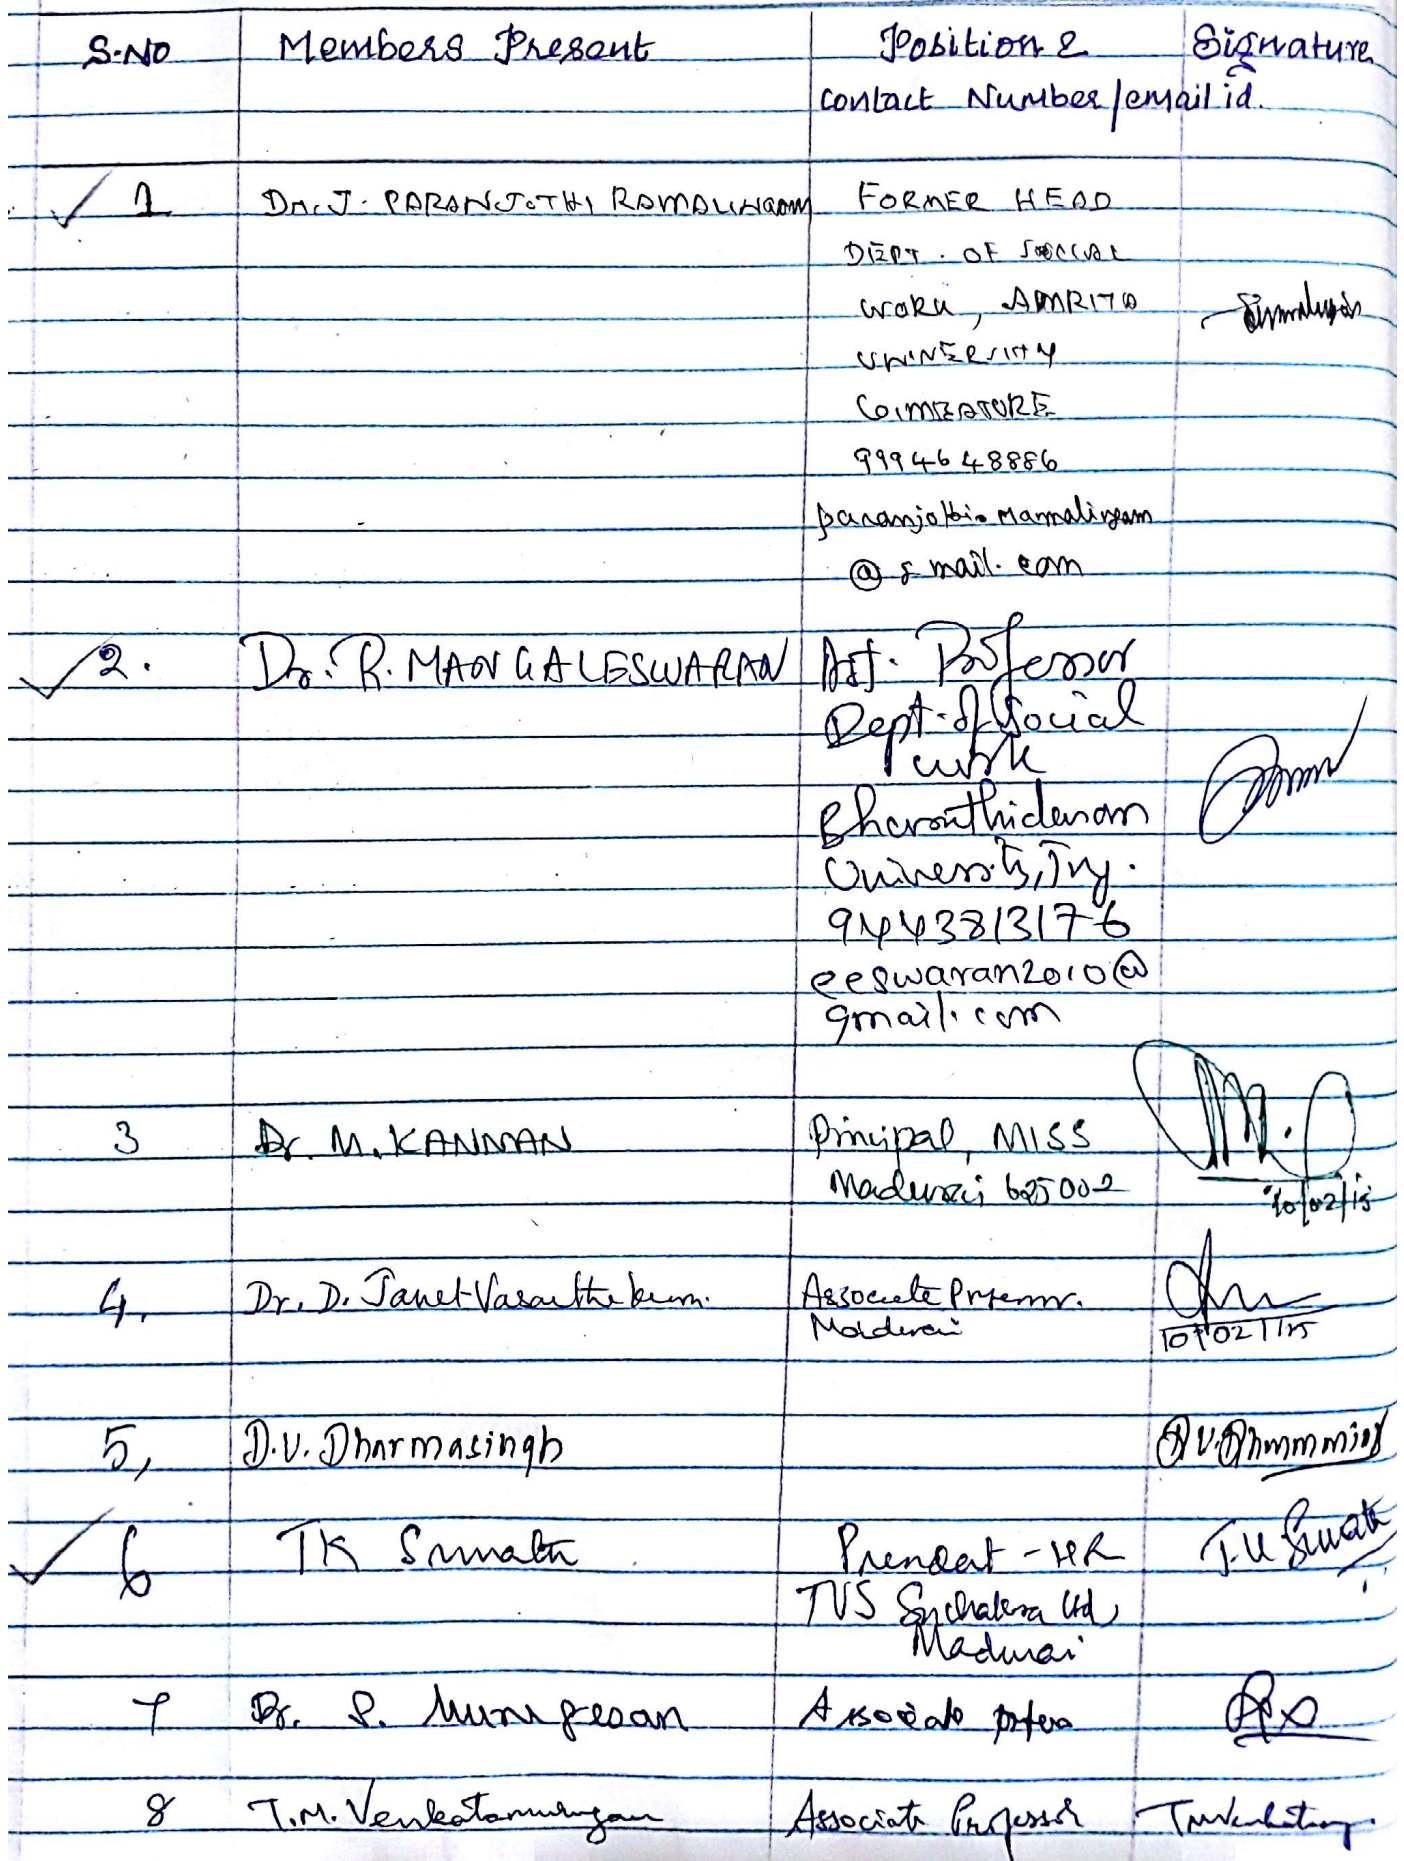 S.NO Members Present Position & Signature
Contact Number/email id.
1 Dr. J. PARANJOTHI RAMALINGAM FORMER HEAD
DEPT. OF SOCIAL
WORK, AMRITA
UNIVERSITY
COIMBATORE
9994648886
paranjothi.ramalingam
@gmail.com
2. Dr. R. MANGALESWARAN Asst. Professor
Dept. of Social
work
Bharathidasan
University, Try.
9443813176
eeswaran2010@
gmail.com
3 Dr. M. KANNAN Principal, MISS
Madurai 625002
10/02/15
4. Dr. D. Janet Vasanthakumari Associate Professor.
Madurai
10/02/15
5, D.V. Dharmasingh
6 TK Srinath President - HR
TVS Srichakra Ltd,
Madurai
7 Dr. S. Murugesan Associate
8 T.M. Venkatamurugan Associate Professor